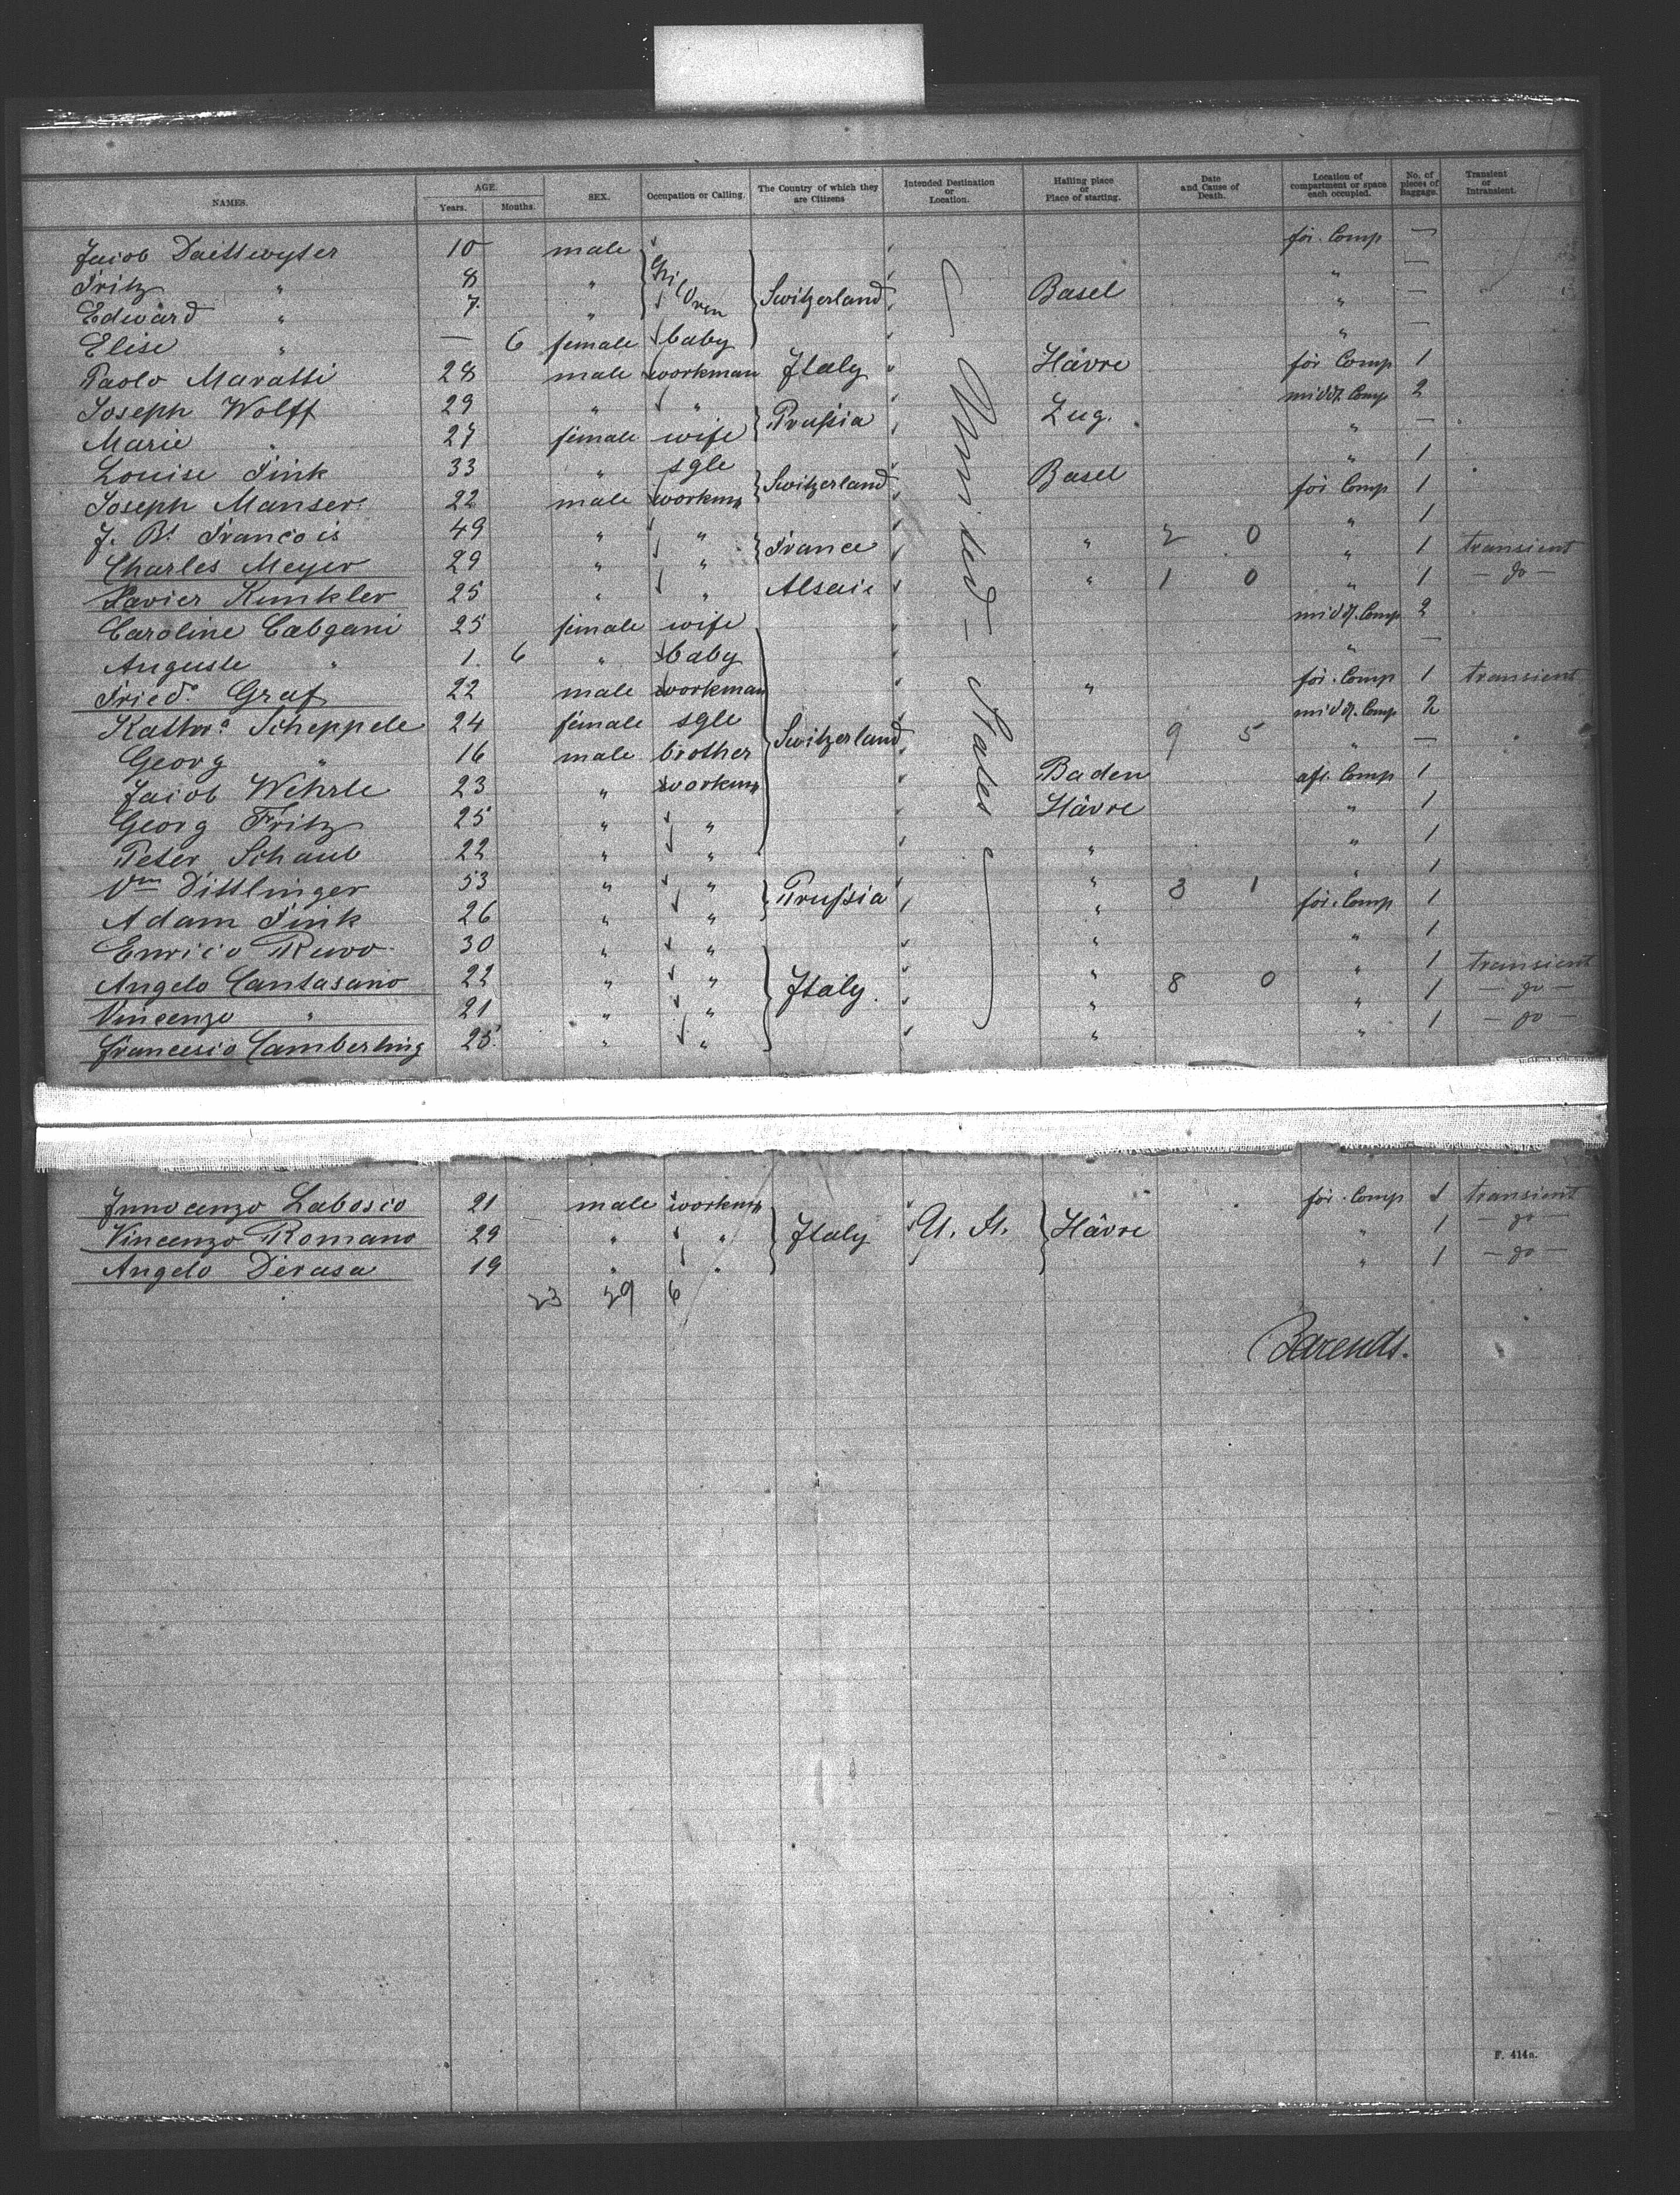 NAMES. AGE. Years. Months. SEX. Occupation or Calling. The Country of which they are Citizens Intended Destination or Location. Hailing place or Place of starting. Date and Cause of Death. Location of compartment or space each occupied. No. of pieces of Baggage. Transient or Intransient.
Jacob Daettwyler 10 male for. Comp —
Fritz " 8 " Children " —
Edward " 7. " Switzerland Basel " —
Elise " — 6 female baby " —
Paolo Maratti 28 male workman Italy Hâvre for Comp 1
Joseph Wolff 29 " " Prussia Zug. middl. Comp 2
Marie " 27 female wife " —
Louise Fink 33 " sgle Switzerland Basel " 1
Joseph Manser 22 male workmn for Comp 1
J. Bt. Francois 49 " " France " 2 0 " 1
Charles Meyer 29 " " " 1 transient
Xavier Kunkler 25 " " Alsace " 1 0 " 1 — do —
Caroline Cabgani 25 female wife middl. Comp 2
Auguste " 1. 6 " baby " —
Fried. Graf 22 male workman " for. Comp 1 transient
Kathra. Scheppele 24 female sgle Switzerland middl. Comp 2
Georg " 16 male brother 9 5 " —
Jacob Wehrle 23 " workmn Baden aft. Comp 1
Georg Fritz 25 " " Hâvre " 1
Peter Schaub 22 " " " " 1
Wm Dittlinger 53 " " Prussia " 3 1 " 1
Adam Fink 26 " " " for. Comp 1
Enrico Ruvo 30 " " " " 1
Angelo Cantasano 22 " " Italy. " 8 0 " 1 transient
Vincenzo " 21 " " " " 1 — do —
Francesco Camberling 25. " " " " 1 — do —
United States
Innocenzo Labosco 21 male workmn for. Comp 1 transient
Vincenzo Romano 29 " " Italy U. St. Hâvre " 1 — do —
Angelo Derasa 19 " " " 1 — do —
23 29 6
Barends.
F. 414a.